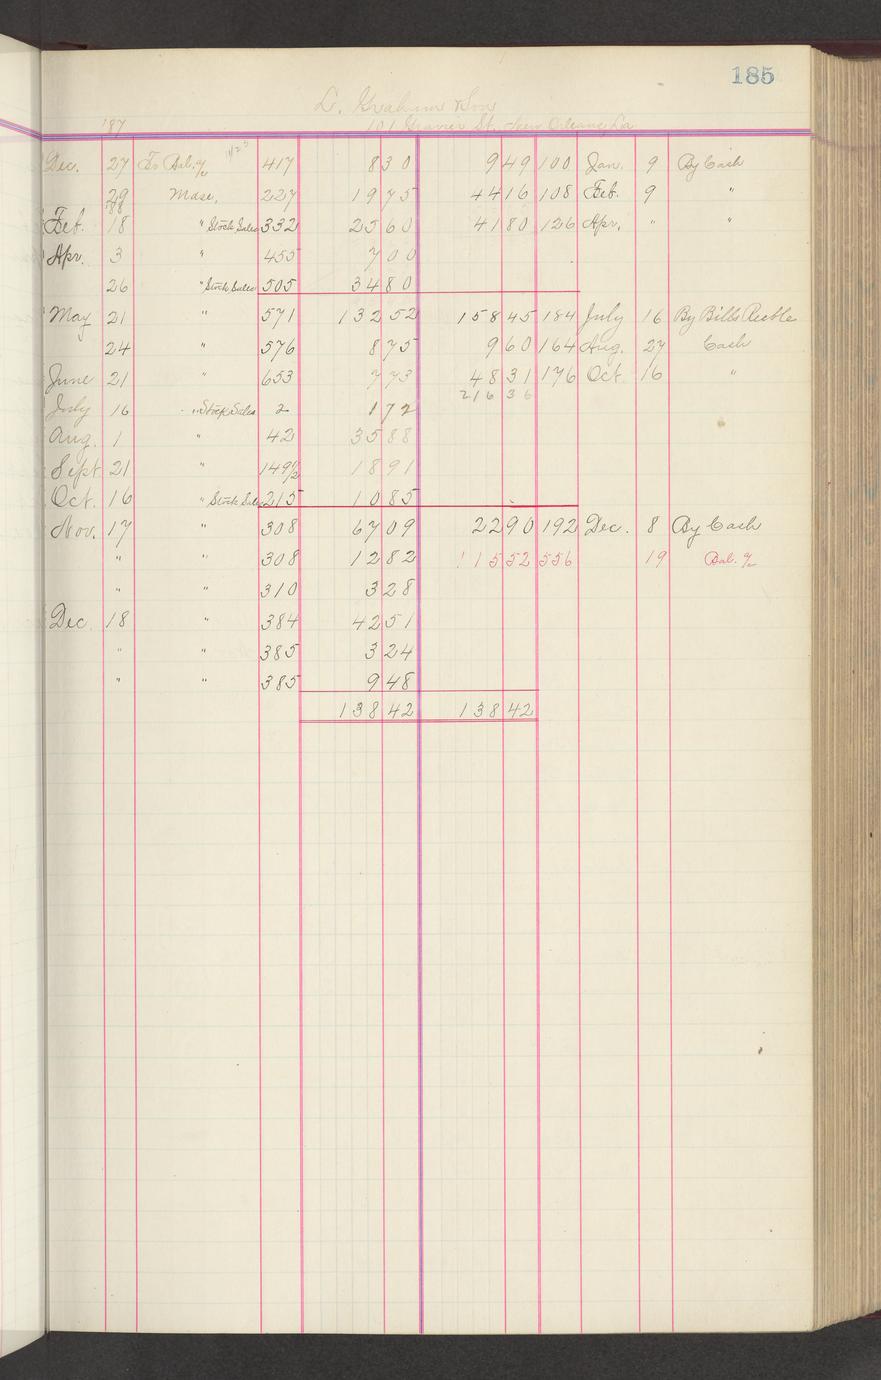 185
L. Graham & Son
'87 101 Gravier St. New Orleans La
Dec. 27 To Bal. a/c 417 8 30 9 49 100 Jan. 9 By Cash
29 Mdse. 227 19 75 44 16 108 Feb. 9 "
88
Feb. 18 " Stock Sales 332 25 60 41 80 126 Apr. " "
Apr. 3 " 455 7 00
26 " Stock Sales 505 34 80
May 21 " 571 132 52 158 45 184 July 16 By Bills Rec'ble
24 " 576 8 75 9 60 164 Aug. 27 Cash
June 21 " 653 7 73 48 31 176 Oct. 16 "
216 36
July 16 " Stock Sales 2 1 72
Aug. 1 " 42 35 88
Sept 21 " 149 1/2 18 91
Oct. 16 " Stock Sales 215 10 85
Nov. 17 " 308 67 09 22 90 192 Dec. 8 By Cash
" " 308 12 82 115 52 556 19 Bal. a/c
" " 310 3 28
Dec. 18 " 384 42 51
" " 385 3 24
" " 385 9 48
138 42 138 42